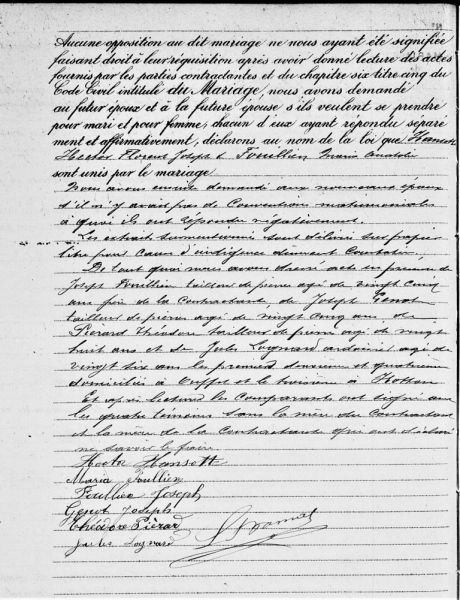 Aucune opposition au dit mariage ne nous ayant été signifiée
faisant droit à leur réquisition après avoir donné lecture des actes
fournis par les parties contractantes et du chapitre six titre cinq du
Code Civil intitulé du Mariage, nous avons demandé
au futur époux et à la future épouse s'ils veulent se prendre
pour mari et pour femme; chacun d'eux ayant répondu séparé
ment et affirmativement, déclarons au nom de la loi que Hansott
Hector Florent Joseph & Fouillien Maria
sont unis par le mariage
Nous avons ensuite demandé aux nouveaux époux
s'il n'y avait pas de Conventions matrimoniales
à quoi ils ont répondu négativement.
Les extraits surmentionnés sont délivrés sur papier
libre pour cause d'indigence dument Constatée.
De tout quoi nous avons dressé acte en présence de
Joseph Fouillien tailleur de pierres agé de vingt cinq
ans frère de la Contractante, de Joseph Genot
tailleur de pierres agé de vingt cinq ans, de
Piérard Théodore tailleur de pierre agé de vingt
huit ans et de Jules Lognard ardoisier agé de
vingt six ans les premier, deuxième et quatrième
domiciliés à Ouffet et le troisième à
Et après lecture les Comparants ont signé avec
les quatre témoins sauf la mère du Contractant
et la mère de la Contractante qui ont déclaré
ne savoir le faire
Hector Hansott
Maria Fouillien
Fouillien Joseph
Genot Joseph
Théodore Piérard
Jules Lognard